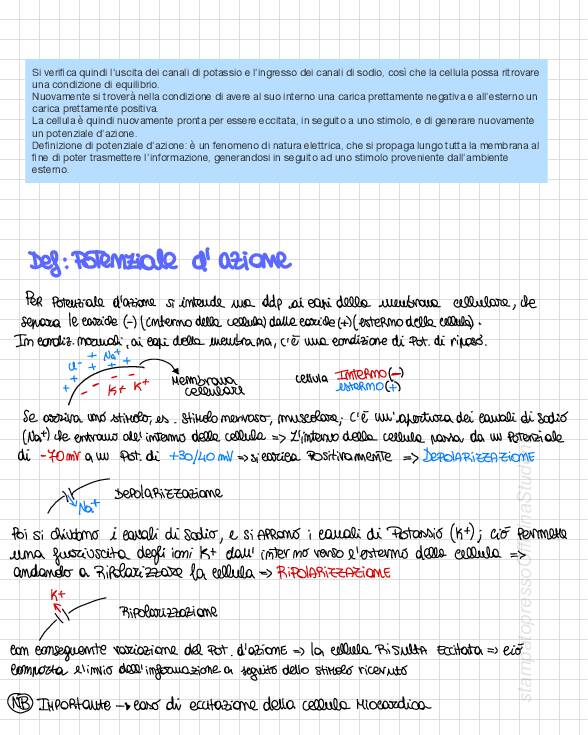 Si verifica quindi l'uscita dei canali di potassio e l'ingresso dei canali di sodio, così che la cellula possa ritrovare
una condizione di equilibrio.
Nuovamente si troverà nella condizione di avere al suo interno una carica prettamente negativa e all'esterno un
carica prettamente positiva.
La cellula è quindi nuovamente pronta per essere eccitata, in seguito a uno stimolo, e di generare nuovamente
un potenziale d'azione.
Definizione di potenziale d'azione: è un fenomeno di natura elettrica, che si propaga lungo tutta la membrana al
fine di poter trasmettere l'informazione, generandosi in seguito ad uno stimolo proveniente dall'ambiente
esterno.
Def: Potenziale d'azione
Per Potenziale d'azione si intende una ddp ai capi della membrana cellulare, che
separa le cariche (-) (interno della cellula) dalle cariche (+) (esterno della cellula).
In condiz. normali, ai capi della membrana, c'è una condizione di Pot. di riposo.
Cl- + + Na+ +
+ + - - - K+ K+
Membrana
cellulare
cellula INTERNO (-)
ESTERNO (+)
Se arriva uno stimolo, es. stimolo nervoso, muscolare; c'è un'apertura dei canali di Sodio
(Na+) che entrano all'interno della cellula => L'interno della cellula passa da un Potenziale
di -70mV a un Pot. di +30/40 mV => si carica Positivamente => DEPOLARIZZAZIONE
Depolarizzazione
Na+
Poi si chiudono i canali di Sodio, e si aprono i canali di Potassio (K+); ciò permette
una fuoriuscita degli ioni K+ dall'interno verso l'esterno della cellula =>
andando a Ripolarizzare la cellula => RIPOLARIZZAZIONE
K+
Ripolarizzazione
con conseguente variazione del Pot. d'azione => la cellula Risulta Eccitata => ciò
comporta l'invio dell'informazione a seguito dello stimolo ricevuto
NB Importante -> caso di eccitazione della cellula Miocardica